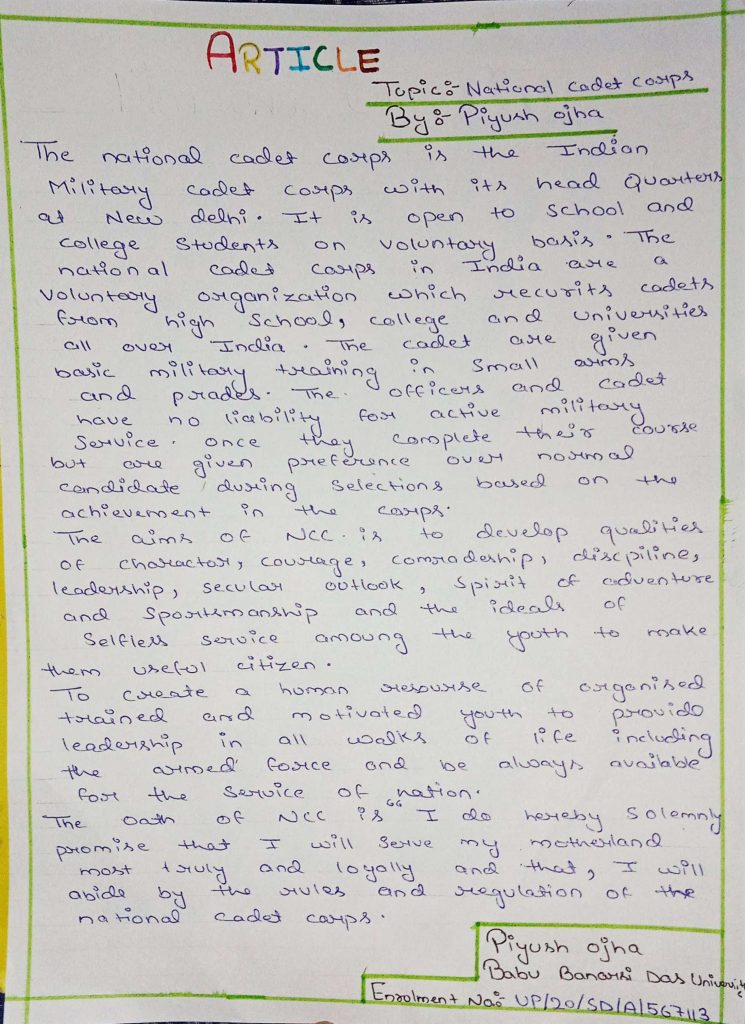 ARTICLE
Topic:- National cadet corps
By:- Piyush ojha
The national cadet corps is the Indian
Military cadet corps with its head Quarters
at New delhi. It is open to school and
college Students on voluntary basis. The
national cadet corps in India are a
voluntary organization which recurits cadets
from high School, college and universities
all over India. The cadet are given
basic military training in Small arms
and prades. The officers and cadet
have no liability for active military
Service. once they complete their course
but are given preference over normal
candidate during Selections based on the
achievement in the corps.
The aims of NCC. is to develop qualities
of charactor, courage, comradeship, discpiline,
leadership, secular outlook, Spirit of adventure
and Sportsmanship and the ideals of
Selfless service amoung the youth to make
them useful citizen.
To create a human resourse of organised
trained and motivated youth to provide
leadership in all walks of life including
the armed force and be always available
for the Service of nation.
The oath of NCC is "I do hereby Solemnly
promise that I will Serve my motherland
most truly and loyally and that, I will
abide by the rules and regulation of the
national cadet corps.
Piyush ojha
Babu Banarsi Das
Enrolment No:- UP/20/SD/A/567113